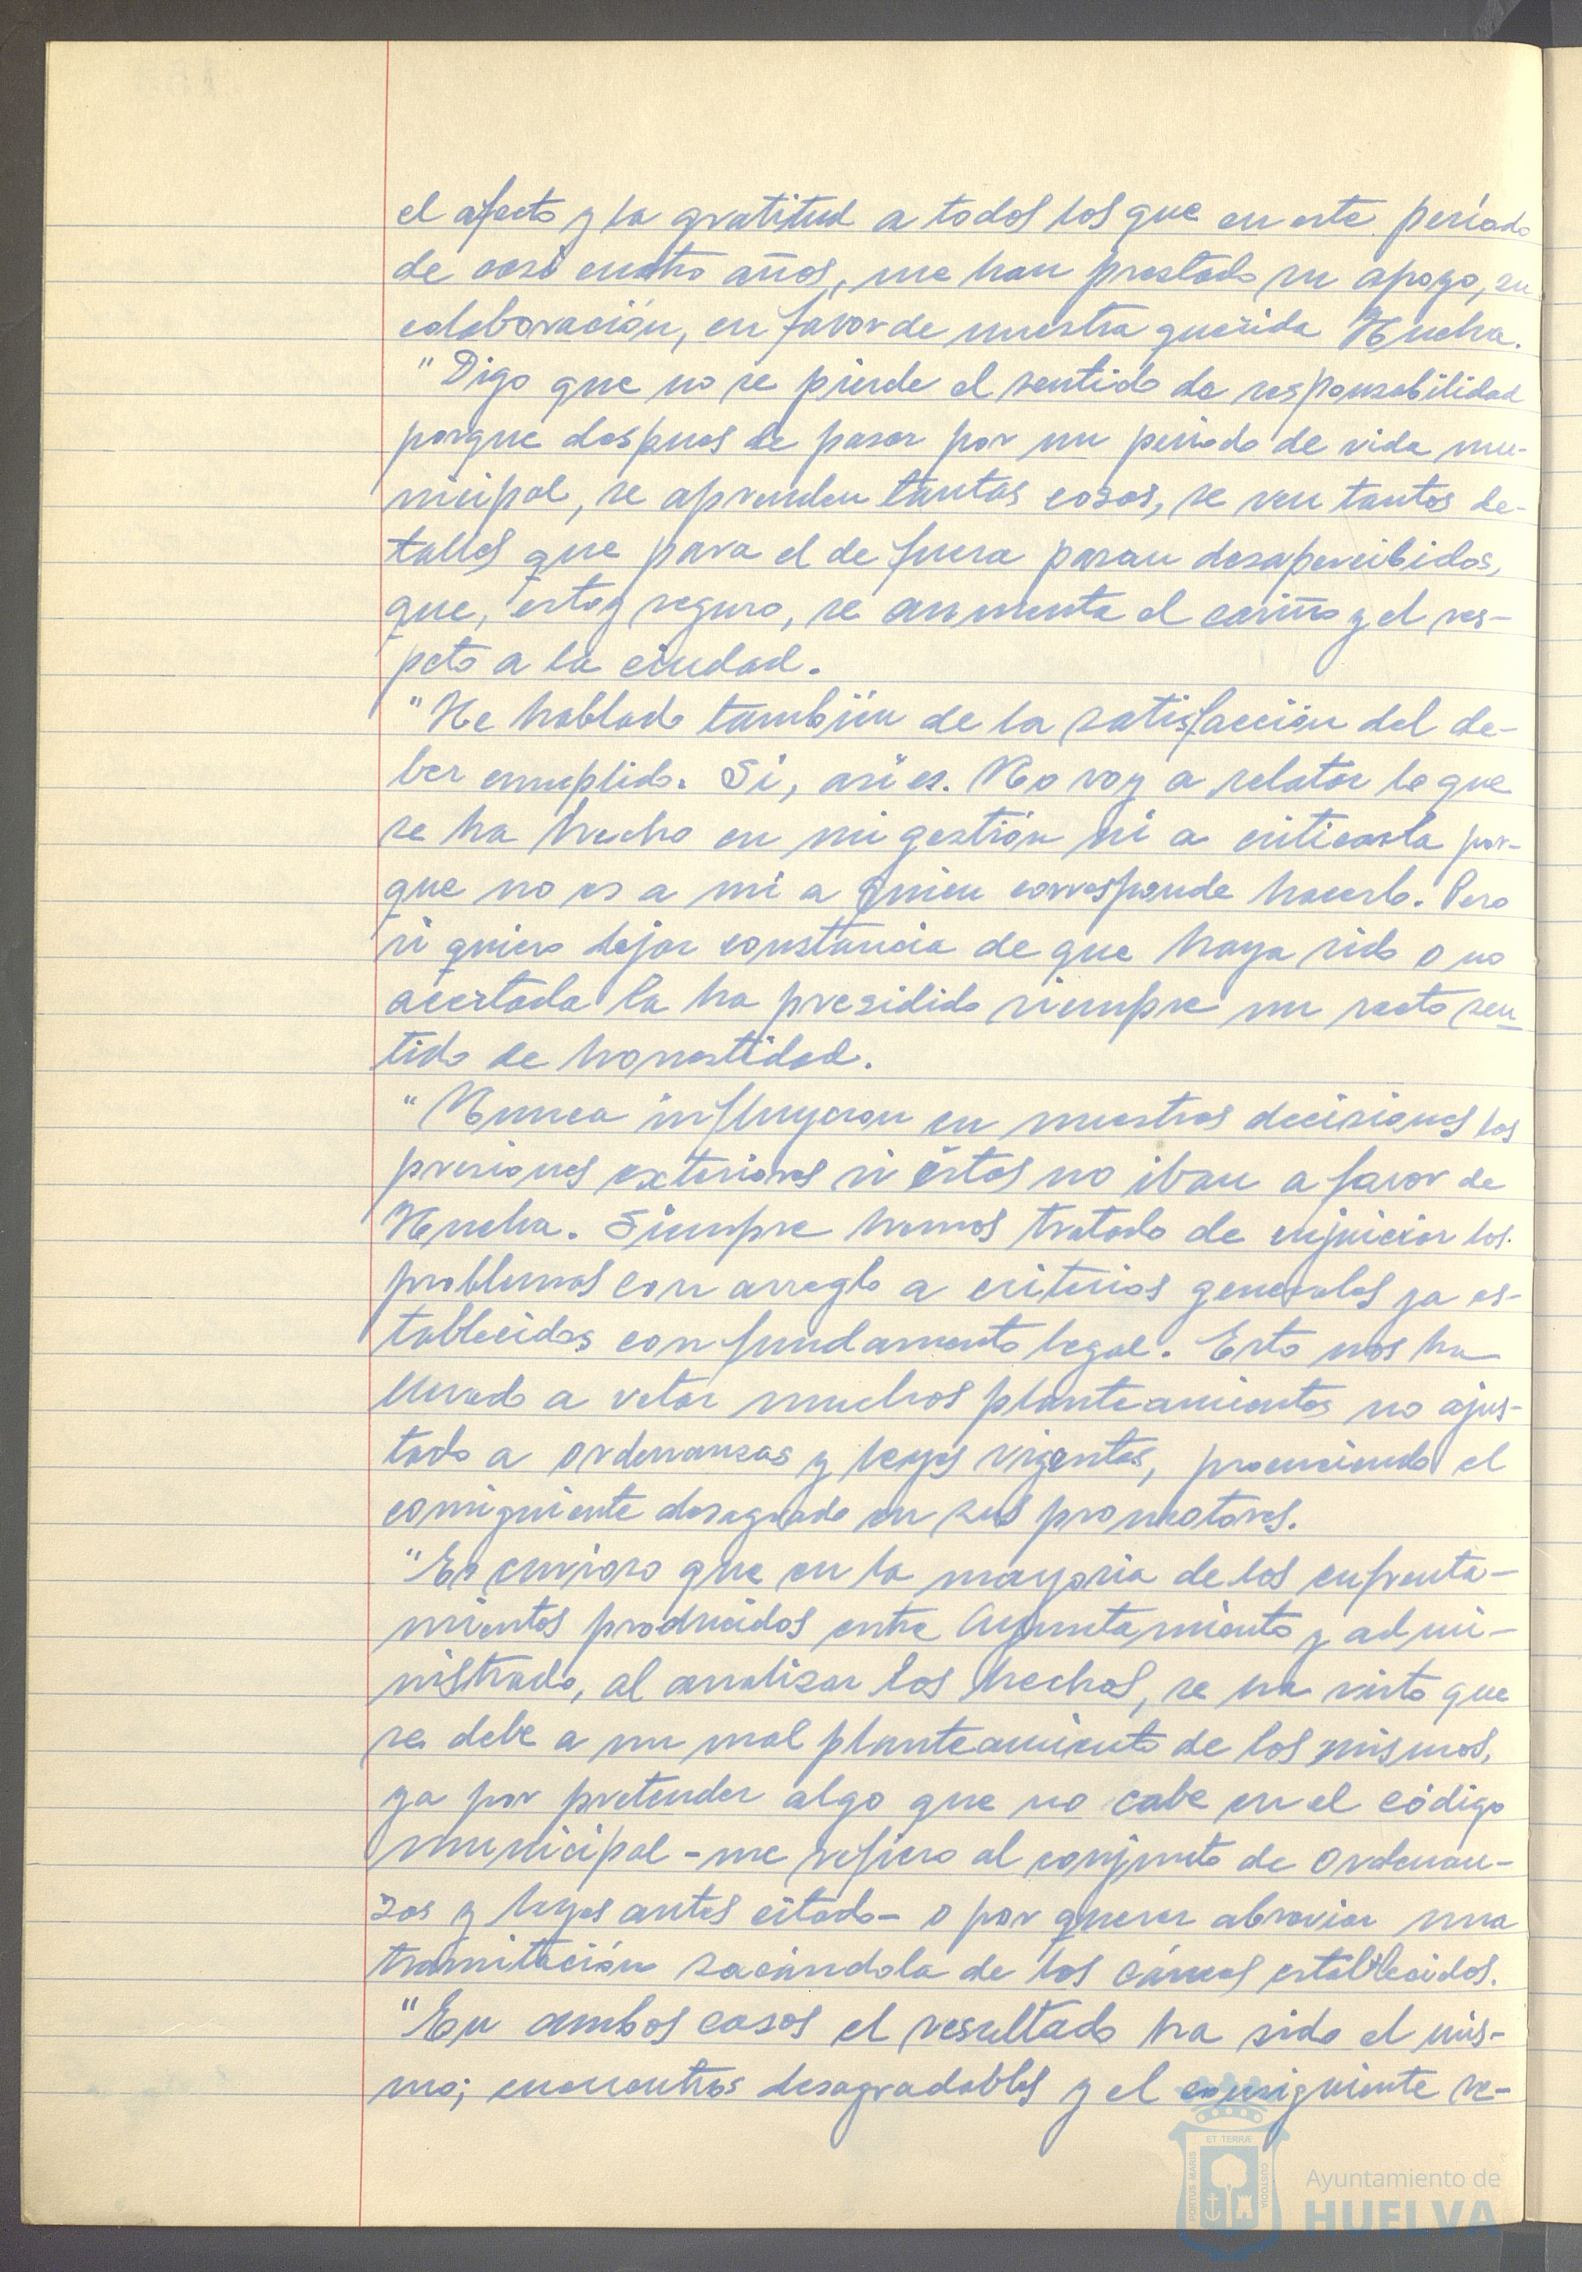 el afecto y la gratitud a todos los que en este período
de casi cuatro años, me han prestado su apoyo, su
colaboración, en favor de nuestra querida Huelva.
"Digo que no se pierde el sentido de responsabilidad
porque despues de pasar por un periodo de vida mu-
nicipal, se aprenden tantas cosas, se ven tantos de-
talles que para el de fuera pasan desapercibidos,
que, estoy seguro, se aumenta el cariño y el res-
peto a la ciudad.
"He hablado también de la satisfacción del de-
ber cumplido. Si, así es. No voy a relatar lo que
se ha hecho en mi gestión ni a criticarla por-
que no es a mi a quien corresponde hacerlo. Pero
si quiero dejar constancia de que haya sido o no
acertada la ha presidido siempre un recto sen-
tido de honestidad.
"Nunca influyeron en nuestras decisiones las
presiones exteriores si éstas no iban a favor de
Huelva. Siempre hemos tratado de enjuiciar los
problemas con arreglo a criterios generales ya es-
tablecidos con fundamento legal. Esto nos ha
llevado a vetar muchos planteamientos no ajus-
tado a ordenanzas y leyes vigentes, provocando el
consiguiente desagrado en sus promotores.
"Es curioso que en la mayoria de los enfrenta-
mientos producidos entre Ayuntamiento y admi-
nistrado, al analizar los hechos, se ha visto que
se debe a un mal planteamiento de los mismos,
ya por pretender algo que no cabe en el código
municipal - me refiero al conjunto de Ordenan-
zas y leyes antes citado - o por querer abreviar una
tramitación sacándola de los cáuces establecidos.
"En ambos casos el resultado ha sido el mis-
mo; encuentros desagradables y el consiguiente re-
ET TERRÆ
PORTUS MARIS
CUSTODIA
Ayuntamiento de
HUELVA